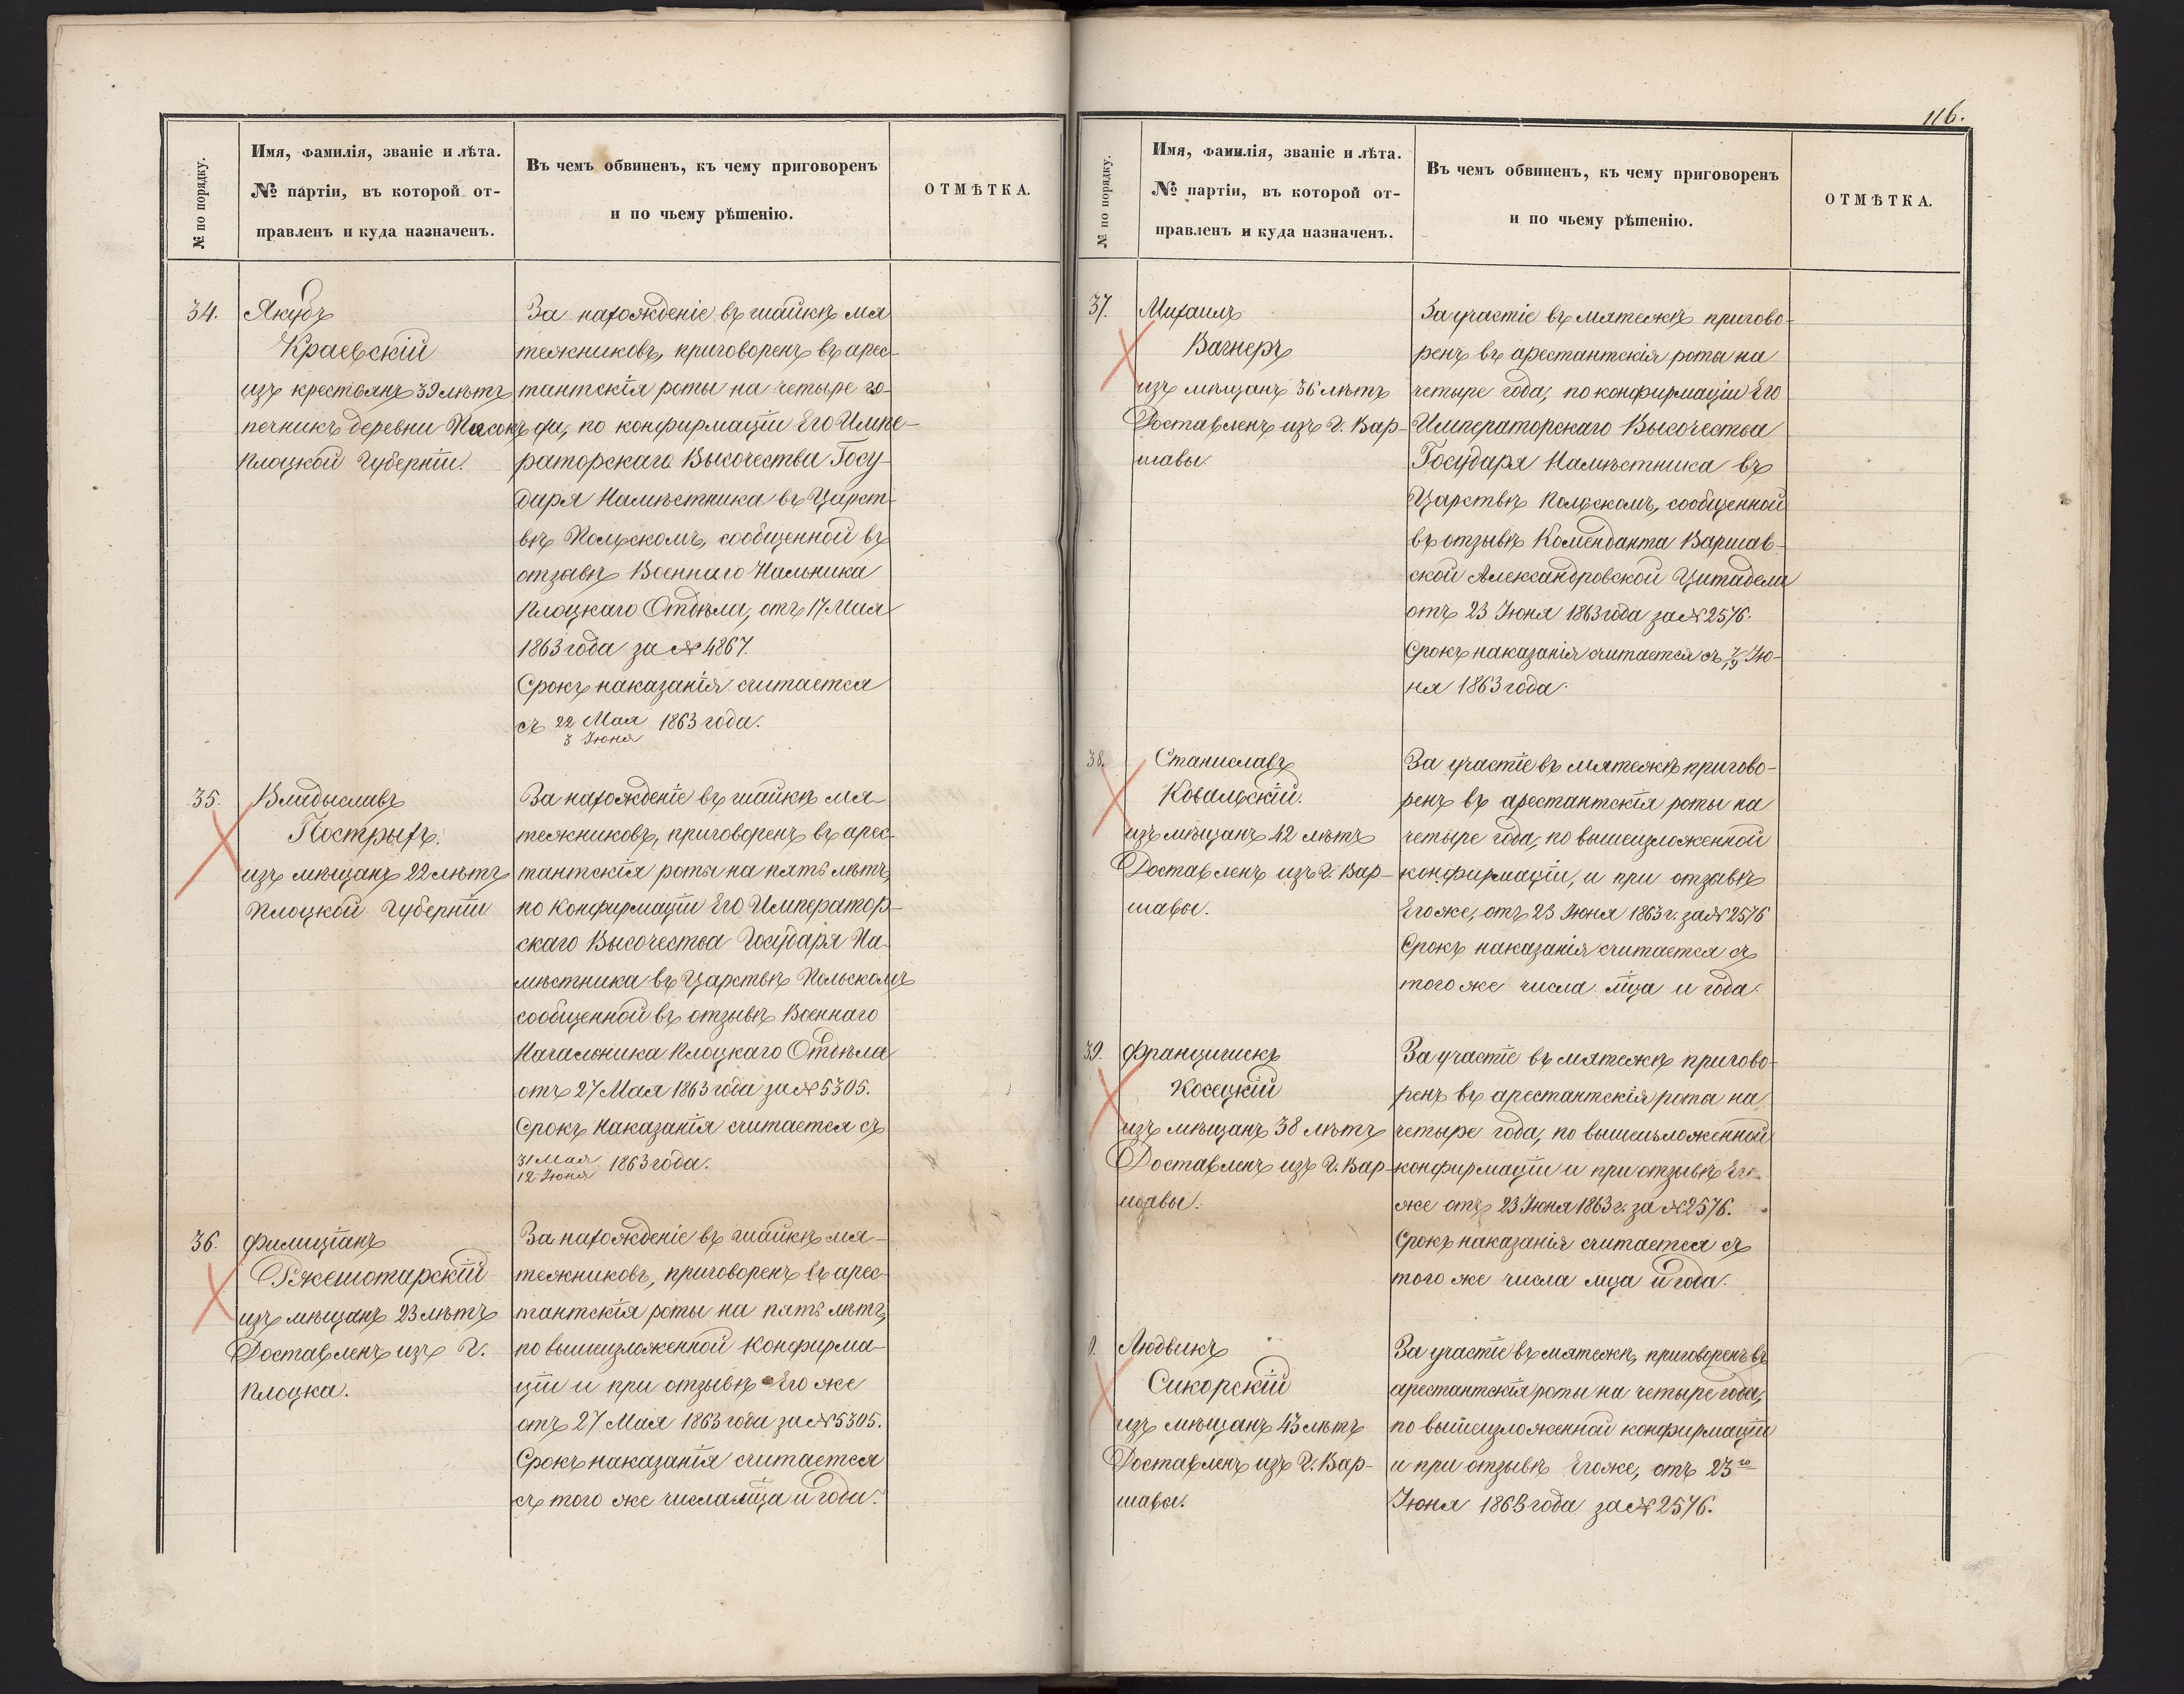 № по порядку.
Имя, фамилія, званіе и лѣта.
№ партіи, въ которой от-
правленъ и куда назначенъ.
Въ чемъ обвиненъ, къ чему приговоренъ
и по чьему рѣшенію.
ОТМѢТКА.
34.
Якубъ
Краевскій
изъ крестьянъ 39 лѣтъ
печникъ деревни
Плоцкой Губерніи.
За нахожденіе въ шайкѣ мя
тежниковъ, приговоренъ въ арес-
тантскія роты на четыре го-
да, по конфирмаціи Его Импе-
раторскаго Высочества Госу-
даря Намѣстника въ Царст-
вѣ Польскомъ, сообщенной въ
отзывѣ Военнаго Нальника
Плоцкаго Отдѣла, отъ 17 Мая
1863 года за № 4867.
Срокъ наказанія считается
съ 22 Мая 1863 года.
3 Іюня
35.
Владыславъ
Пострыхъ.
изъ мѣщанъ 22 лѣтъ
Плоцкой Губерніи
За нахожденіе въ шайкѣ мя-
тежниковъ, приговоренъ въ арес-
тантскія роты на пять лѣтъ,
по Конфирмаціи Его Император-
скаго Высочества Государя На-
мѣстника въ Царствѣ Польскомъ
сообщенной въ отзывѣ Военнаго
Начальника Плоцкаго Отдѣла
отъ 27 Мая 1863 года за № 5305.
Срокъ Наказанія считается съ
31 Мая 1863 года.
12 Іюня
36.
Филиціанъ
Ржешотарскій
изъ мѣщанъ 23 лѣтъ
Доставленъ изъ Г.
Плоцка.
За нахожденіе въ шайкѣ мя-
тежниковъ, приговоренъ въ арес-
тантскія роты на пять лѣтъ,
по вышеизложенной Конфирма-
ціи и при отзывѣ Его же
отъ 27 Мая 1863 года за № 5305.
Срокъ наказанія считается
съ того же числа мца и года.
116.
№ по порядку.
Имя, фамилія, званіе и лѣта.
№ партіи, въ которой от-
правленъ и куда назначенъ.
Въ чемъ обвиненъ, къ чему приговоренъ
и по чьему рѣшенію.
ОТМѢТКА.
37.
Михаилъ
Вагнеръ
изъ мѣщанъ 36 лѣтъ
Доставленъ изъ Г. Вар-
шавы.
За участіе въ мятежѣ пригово-
ренъ въ арестантскія роты на
четыре года, по конфирмаціи Его
Императорскаго Высочества
Государя Намѣстника въ
Царствѣ Польскомъ, сообщенной
въ отзывѣ Коменданта Варшав-
ской Александровской Цитадели
отъ 23 Іюня 1863 года за № 2576.
Срокъ наказанія считается съ 7/19 Ію-
ня 1863 года.
38.
Станиславъ
Ковальскій.
изъ мѣщанъ 42 лѣтъ
Доставленъ изъ Г. Вар-
шавы.
За участіе въ мятежѣ пригово-
ренъ въ арестантскія роты на
четыре года, по вышеизложенной
конфирмаціи, и при отзывѣ
Его же, отъ 23 Іюня 1863 г. за № 2576
Срокъ наказанія считается съ
того же числа мца и года.
39.
Францишекъ
Косецкій
изъ мѣщанъ 38 лѣтъ
Доставленъ изъ Г. Вар-
шавы.
За участіе въ мятежѣ пригово-
ренъ въ арестантскія роты на
четыре года, по вышеизложенной
конфирмаціи и при отзывѣ Его
же отъ 23 Іюня 1863 г. за № 2576.
Срокъ наказанія считается съ
того же числа мца и года.
Людвикъ
Сикорскій
изъ мѣщанъ 43 лѣтъ
Доставленъ изъ Г. Вар-
шавы.
За участіе въ мятежѣ, приговоренъ въ
арестантскія роты на четыре года,
по вышеизложенной конфирмаціи
и при отзывѣ Его же, отъ 23го
Іюня 1863 года за № 2576.